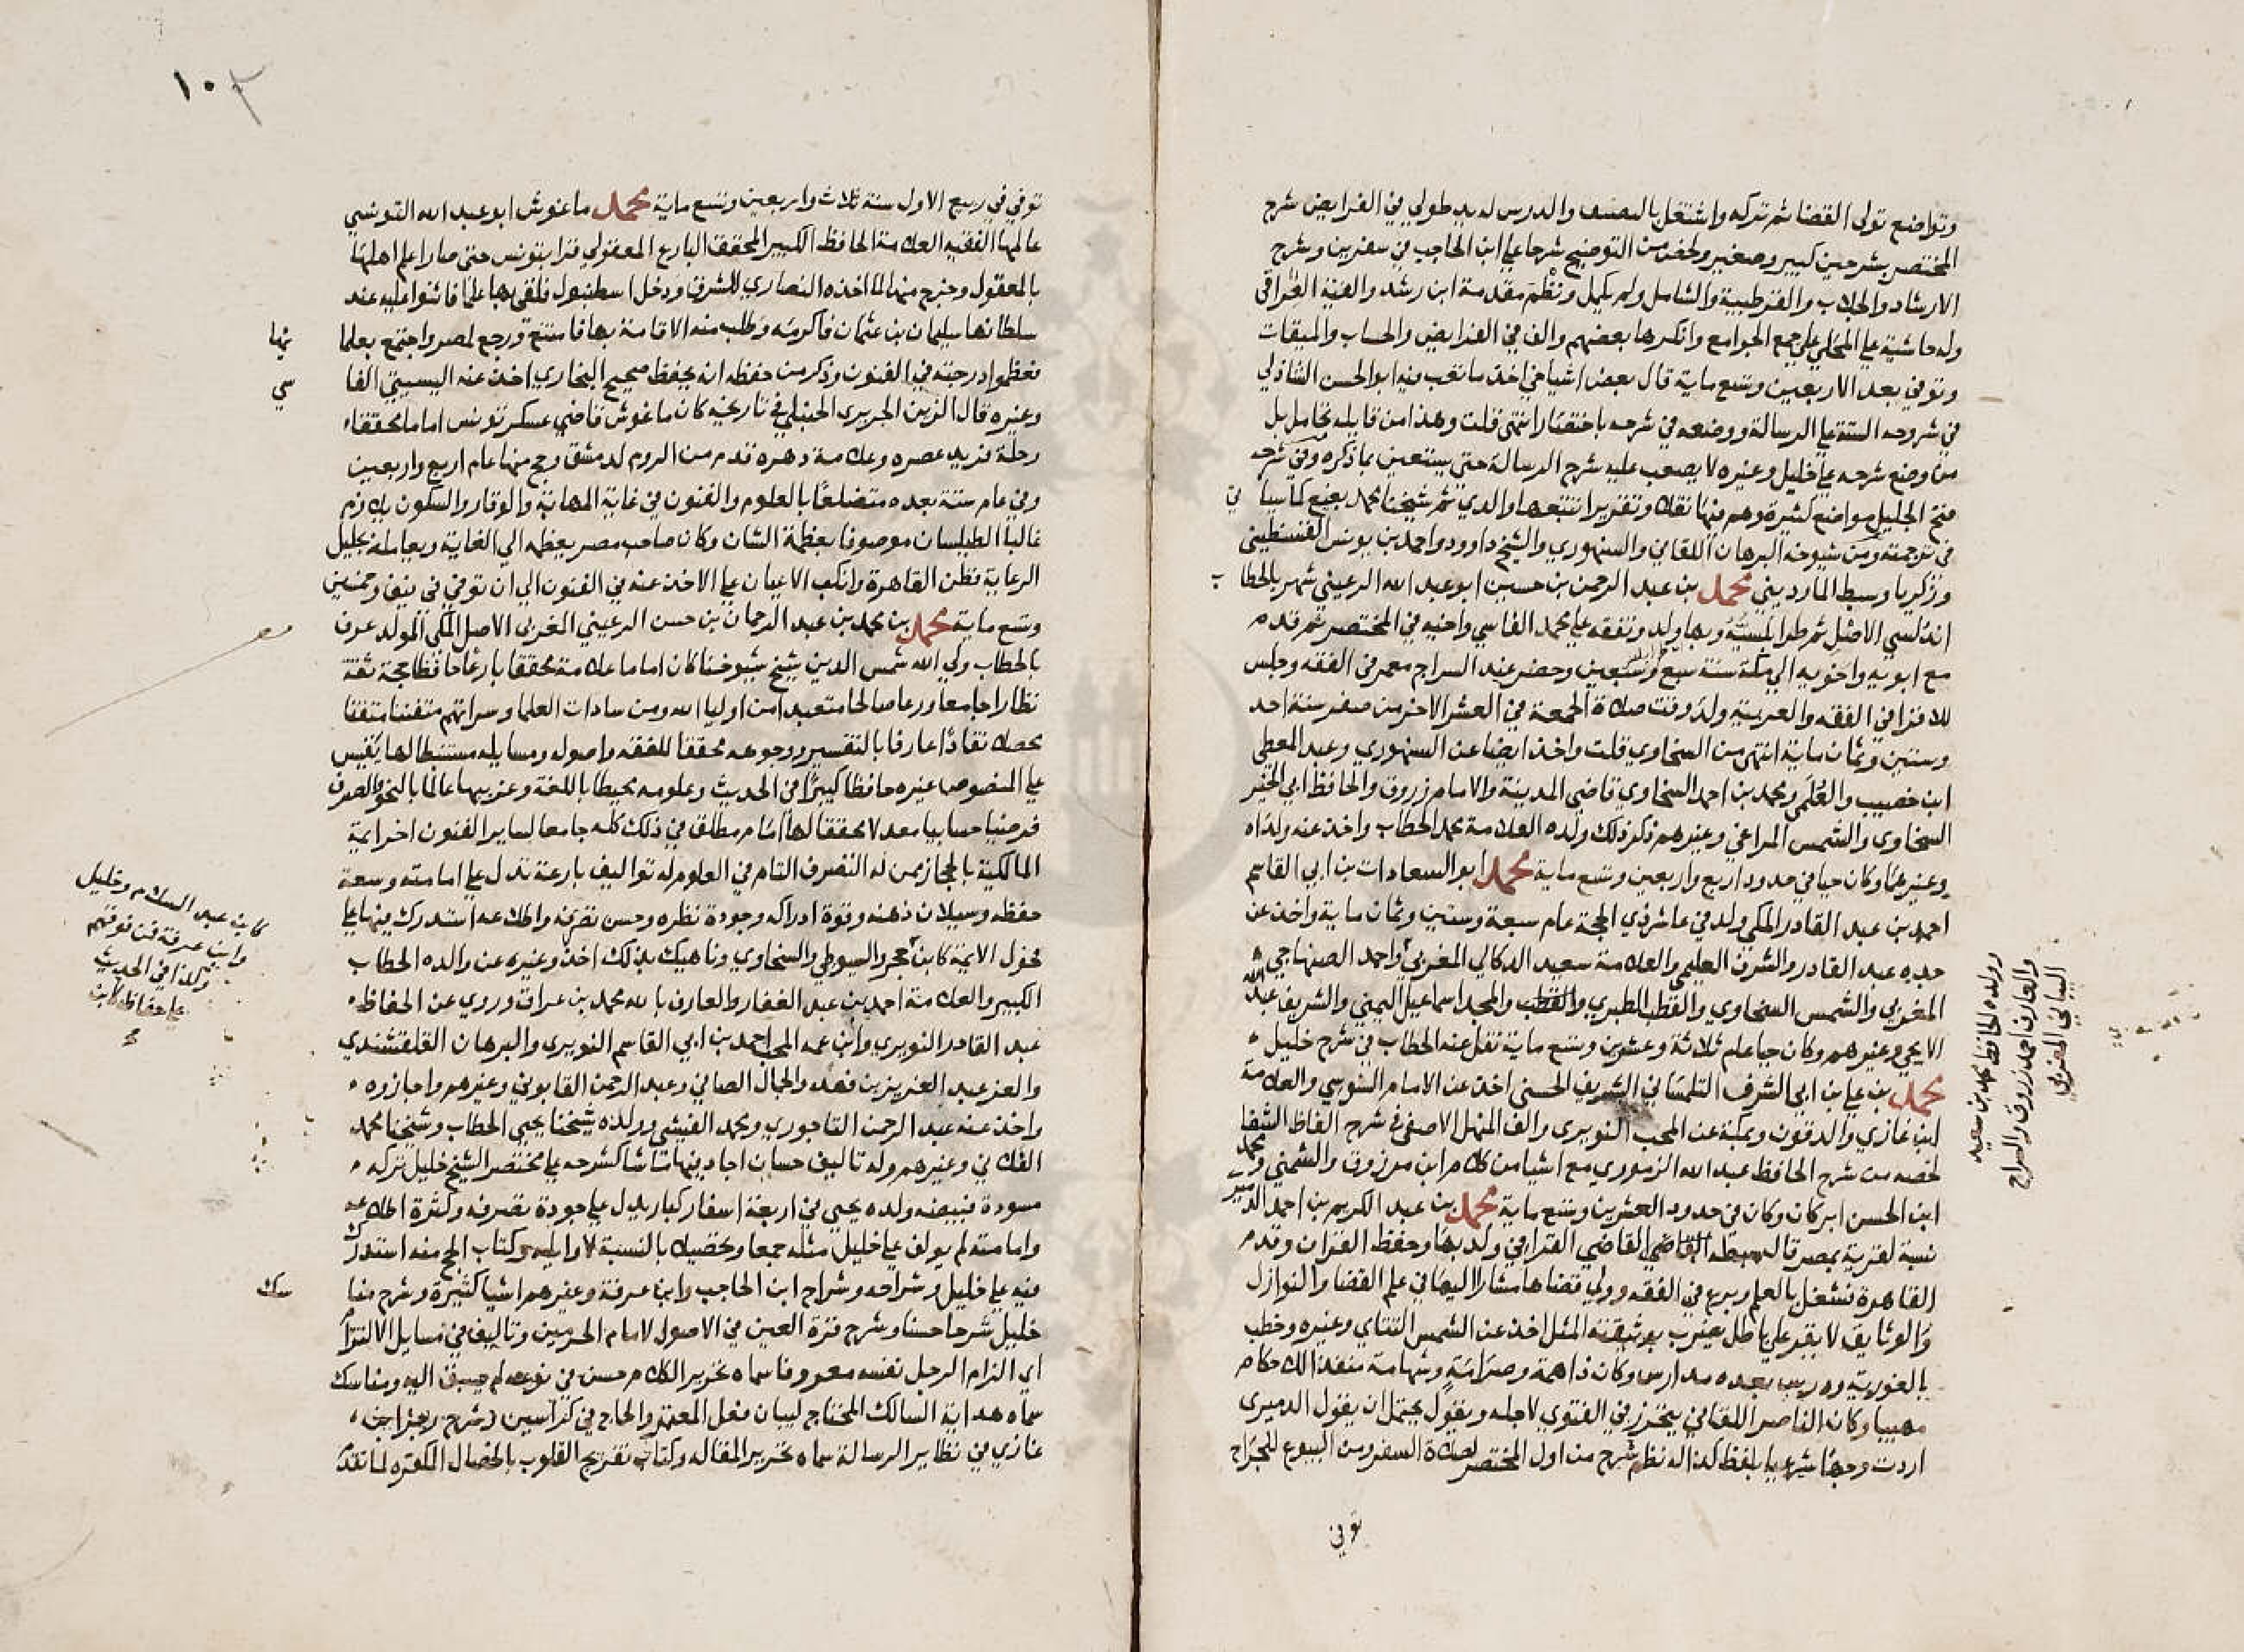 وتواضع تولى القضا ثم تركه واشتغل بالتصنيف والدرس له يد طولي في الفرايض شرح
المختصر بشرحين كبير وصغير ولخصه من التوضيح شرحا علي ابن الحاجب في سفرين وشرح
الارشاد والجلاب والقرطبية والشامل ولم يكمل ونظم مقدمة ابن رشد والفية العراقي
وله حاشية علي المحلي علي جمع الجوامع وانكرها بعضهم والف في الفرايض والحساب والميقات
وتوفي بعد الاربعين وتسع ماية قال بعض اشياخي اخذ ما تعب فيه ابو الحسن الشاذلي
في شروحه الستة علي الرسالة ووضعه في شرحه باختصار انتهى قلت وهذا من قايله تحامل بل
من وضع شرحه علي خليل وغيره لا يصعب عليه شرح الرسالة حتى يستعين بما ذكره وفي شرحه
فتح الجليل مواضع كثيرة وهم فيها نقلا وتقريرا تتبعها والدي ثم شيخنا محمد بغيع كما سيا في
في ترجمته ومن شيوخه البرهان اللقاني والسنهوري والشيخ داوود واحمد بن يونس القسنطيني
وزكريا وسبط المارديني محمد بن عبد الرحمن بن حسين ابو عبد الله الرعيني شهر بالحطاب
اندلسي الاصل ثم طرابلسيه وبها ولد وتفقه علي محمد الفاسي واخيه في المختصر ثم قدم
مع ابويه واخويه الي مكة سنة سبع وسبعين وحضر عند السراج معمر في الفقه وجلس
للاقرا في الفقه والعربية ولد وقت صلاة الجمعة في العشر الاخر من صفر سنة احد
وستين وثمان ماية انتهى من السخاوي قلت واخذ ايضا عن السنهوري وعبد المعطي
ابن خصيب والعلمي ومحمد بن احمد السخاوي قاضي المدينة والامام زروق والحافظ ابي الخير
السخاوي والشمس المراغي وغيرهم ذكر ذلك ولده العلامة محمد الحطاب واخذ عنه ولداه
وغيرهما وكان حيا في حدود اربع واربعين وتسع ماية محمد ابو السعادات بن ابي القاسم
احمد بن عبد القادر المكي ولد في عاشر ذي الحجة عام سبعة وستين وثمان ماية واخذ عن
جده عبد القادر والشرف العليمي والعلامة سعيد الدكالي المغربي واحمد الصنهاجي
المغربي والشمس السخاوي والقطب الطبري والمجد اسماعيل اليمني والشريف عبد الله
الايجي وغيرهم وكان حيا عام ثلاثة وعشرين وتسع ماية نقل عنه الحطاب في شرح خليل
محمد بن علي بن ابي الشرف التلمساني الشريف الحسني اخذ عن الامام السنوسي والعلامة
ابن غازي والدقون وبمكة عن المحب النويري والف المنهل الاصفى في شرح الفاظ الشفا
لخصه من شرح الحافظ عبد الله الزموري مع اشيا من كلام ابن مرزوق والشمني ومحمد
ابن الحسن ابركان وكان في حدود العشرين وتسع ماية محمد بن عبد الكريم بن احمد الدميري
نسبة لقرية بمصر قال سبطه القاضي القرافي ولد بها وحفظ القران وقدم
القاهرة تشتغل بالعلم وبرع في الفقه وولي قضاها مشارا اليها في علم القضا والنوازل
والوثايق لا يقر علي باطل يضرب بوثيقته المثل اخذ عن الشمس التتاي وغيره وخطب
بالغورية ودرس بعده مدارس وكان ذا همة وصرامة وشهامة منفذا للاحكام
مهيبا وكان الناصر اللقاني يتحرز في الفتوى لاجله ويقول يحتمل ان يقول الدميري
اردت وجها شرعيا بلفظ كذا له نظم شرح من اول المختصر لصلاة السفر ومن البيوع للجراح
توفي
وولده الحافظ محمد بن سعيد
والعارف احمد زروق والسراج
المغربي
١٠٣
توفي في ربيع الاول سنة ثلاث واربعين وتسع ماية محمد ماغوش ابو عبد الله التونسي
عالمها الفقيه العلامة الحافظ الكبير المحقق البارع المعقولي قرا بتونس حتى صار اعلم اهلها
بالمعقول وخرج منها لما اخذه النصاري للشرق ودخل اسطنبول فلقي بها علما فاثنوا عليه عند
سلطانها سليمان بن عثمان فاكرمه وطلب منه الاقامة بها فامتنع ورجع لمصر واجتمع بعلما
فعظموا درجته في الفنون وذكر من حفظه انه يحفظ صحيح البخاري اخذ عنه اليسيتني الفا
وغيره قال الزين الجريري الحنبلي في تاريخه كان ماغوش قاضي عسكر تونس اماما محققا
رحلة فريد عصره وعلامة دهره قدم من الروم لدمشق وحج منها عام اربع واربعين
وفي عام ستة بعده متضلعا بالعلوم والفنون في غاية المهابة والوقار والسكون يلازم
غالبا الطيلسان موصوفا بعظمة الشان وكان صاحب مصر يعظمه الي الغاية ويعامله بجليل
الرعاية فقطن القاهرة وانكب الاعيان علي الاخذ عنه في الفنون الي ان توفي في نيف وخمسين
وتسع ماية محمد بن محمد بن عبد الرحمان بن حسن الرعيني المغربي الاصل المكي المولد عرف
بالحطاب ولي الله شمس الدين شيخ شيوخنا كان اماما علامة محققا بارعا حافظا حجة ثقة
نظارا جامعا ورعا صالحا متعبدا من اوليا الله ومن سادات العلما وسراتهم متفننا متقنا
محصلا نقادا عارفا بالتفسير ووجوهه محققا للفقه واصوله ومسايله مستنبطا لها يقيس
علي المنصوص غيره حافظا كبيرا في الحديث وعلومه محيطا باللغة وغريبها عالما بالنحو والصرف
فرضيا حسابيا معدلا محققا لها امام مطلق في ذلك كله جامعا لساير الفنون اخر ايمة
المالكية بالحجاز ممن له التصرف التام في العلوم له تواليف بارعة تدل علي امامته وسعة
حفظه وسيلان ذهنه وقوة ادراكه وجودة نظره وحسن تصرفه واطلاعه استدرك فيها علي
فحول الايمة كابن حجر والسيوطي والسخاوي وناهيك بذلك اخذ وغيره عن والده الحطاب
الكبير والعلامة احمد بن عبد الغفار والعارف بالله محمد بن عراق وروي عن الحفاظ
عبد القادر النويري وابن عمه المحب احمد بن ابي القاسم النويري والبرهان القلقشندي
والعز عبد العزيز بن فهد والجمال الصاني وعبد الرحمن القابوني وغيرهم واجازوه
واخذ عنه عبد الرحمن التاجوري ومحمد الفيشي وولده شيخنا يحيى الحطاب وشيخنا محمد
الفلاني وغيرهم وله تاليف حسان اجاد فيها ما شا كشرحه علي مختصر الشيخ خليل تركه
مسودة فبيضه ولده يحيى في اربعة اسفار كبار يدل علي جودة تصرفه وكثرة اطلاعه
وامامته لم يولف علي خليل مثله جمعا وتحصيلا بالنسبة لاوايله وكتاب الحج منه استدرك
فيه علي خليل وشراحه وشراح ابن الحاجب وابن عرفة وغيرهم اشيا كثيرة وشرح منا
سك
خليل شرحا حسنا وشرح قرة العين في الاصول لامام الحرمين وتاليف في مسايل الالتزام
اي الزام الرجل نفسه معروفا سماه تحرير الكلام حسن في نوعه لم يسبق اليه ومناسك
سماه هداية السالك المحتاج لبيان فعل المعتمر والحاج في كراسين وشرح رجز ابن
غازي في نظاير الرسالة سماه تحرير المقاله وكتاب تفريح القلوب بالخصال المكفره لما تقدم
كابن عبد السلام وخليل
وابن عرفة فمن فوقهم
وكذا في الحديث
علي حفاظه كابن